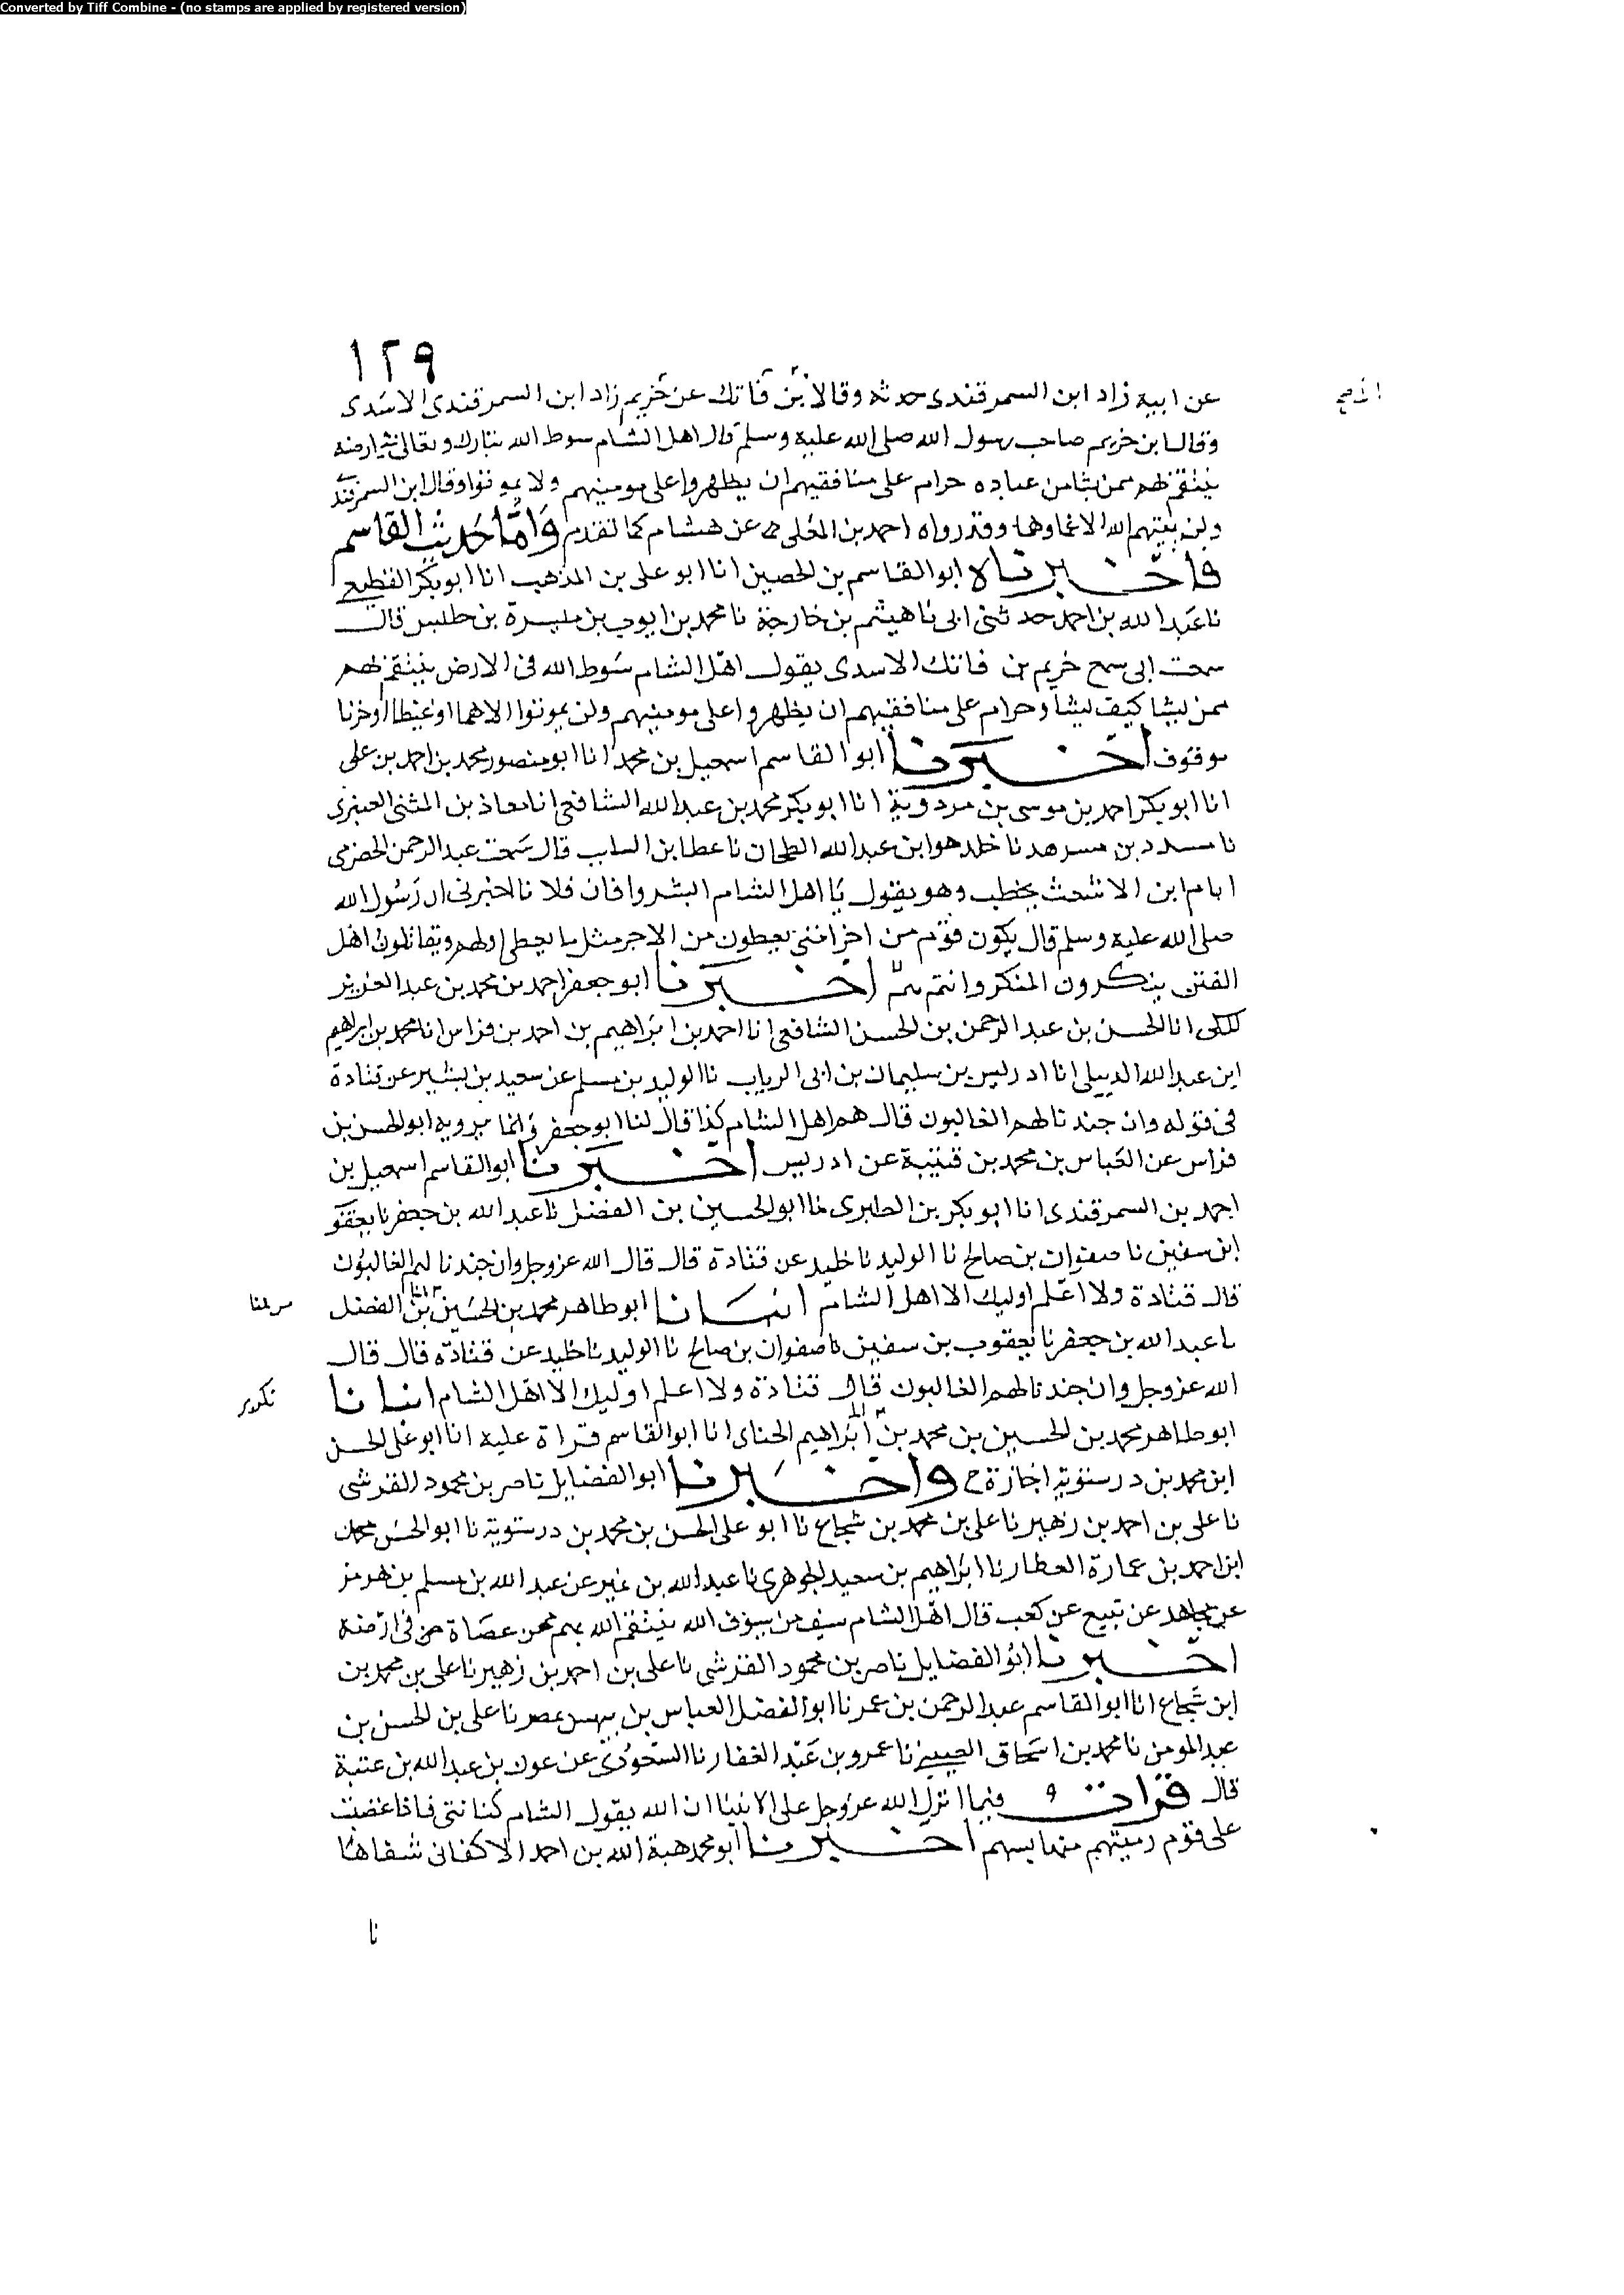 Converted by Tiff Combine - (no stamps are applied by registered version)
١٢٩
عن ابيه زاد ابن السمرقندى حدثه وقالا بن فاتك عن خريم زاد ابن السمرقندى الاسدى
وقالا بن خريم صاحب رسول الله صلى الله عليه وسلم قال اهل الشام سوط الله تبارك وتعالى فى ارضه
ينتقم بهم ممن يشا من عباده حرام على منافقيهم ان يظهروا على مومنيهم ولا يموتوا وقال ابن السمرقندى
ولن يميتهم الله الا غما وهما وقد رواه احمد بن المعلى عن هشام كما تقدم واما حديث القاسم
فاخبرناه ابو القاسم بن الحصين انا ابو على بن المذهب انا ابو بكر القطيعى
نا عبد الله بن احمد حدثنى ابى نا هيثم بن خارجة نا محمد بن ايوب بن ميسرة بن حلبس قال
سمعت ابى سمع خريم بن فاتك الاسدى يقول اهل الشام سوط الله فى الارض ينتقم بهم
ممن يشا كيف يشا وحرام على منافقيهم ان يظهروا على مومنيهم ولن يموتوا الا هما او غيظا او حزنا
موقوف اخبرنا ابو القاسم اسمعيل بن محمد انا ابو منصور محمد بن احمد بن على
انا ابو بكر احمد بن موسى بن مردوية انا ابو بكر محمد بن عبد الله الشافعى انا معاذ بن المثنى العنبرى
نا مسدد بن مسرهد نا خلد هوا بن عبد الله الطحان نا عطا بن الساب قال سمعت عبد الرحمن الحضرمى
ايام ابن الاشعث يخطب وهو يقول يا اهل الشام ابشروا فان فلانا اخبرنى ان رسول الله
صلى الله عليه وسلم قال يكون قوم من اخر امتى يعطون من الاجر مثل ما يعطى اولهم ويقاتلون اهل
الفتن ينكرون المنكر وانتم هم اخبرنا ابو جعفر احمد بن محمد بن عبد العزيز
المكى انا الحسن بن عبد الرحمن بن الحسن الشافعى انا احمد بن ابراهيم بن احمد بن فراس انا محمد بن ابراهيم
ابن عبد الله الديبلى انا ادريس بن سليمان بن ابى الرباب نا الوليد بن مسلم عن سعيد بن بشير عن قتادة
فى قوله وان جندنا لهم الغالبون قال هم اهل الشام كذا قال لنا ابو جعفر وانما يرويه ابو الحسن بن
فراس عن العباس بن محمد بن قتيبة عن ادريس اخبرنا ابو القاسم اسمعيل بن
احمد بن السمرقندى انا ابو بكر بن الطبرى نا ابو الحسين بن الفضل نا عبد الله بن جعفر نا يعقو
ابن سفين نا صفوان بن صالح نا الوليد نا خليد عن قتادة قال قال الله عز وجل وان جندنا لهم الغالبون
قال قتادة ولا اعلم اوليك الا اهل الشام انبانا ابو طاهر محمد بن الحسين بن الفضل
نا عبد الله بن جعفر نا يعقوب بن سفين نا صفوان بن صالح نا الوليد نا خليد عن قتادة قال قال
الله عز وجل وان جندنا لهم الغالبون قال قتادة ولا اعلم اوليك الا اهل الشام انبانا
تكرر
ابو طاهر محمد بن الحسين بن محمد بن ابراهيم الحناى انا ابو القاسم قراة عليه انا ابو على الحسن
ابن محمد بن درستويه اجازة ح واخبرنا ابو الفضايل ناصر بن محمود القرشى
نا على بن احمد بن زهير نا على بن محمد بن شجاع نا ابو على الحسن بن محمد بن درستوية نا ابو الحسن محمد
ابن احمد بن عمارة العطار نا ابراهيم بن سعيد الجوهرى نا عبد الله بن نمير عن عبد الله بن مسلم بن هرمز
عن مجاهد عن تبيع عن كعب قال اهل الشام سيف من سيوف الله ينتقم الله بهم ممن عصاة من فى ارضه
اخبرنا ابو الفضايل ناصر بن محمود القرشى نا على بن احمد بن زهير نا على بن محمد بن
ابن شجاع انا ابو القاسم عبد الرحمن بن عمر نا ابو الفضل العباس بن نا على بن الحسن بن
عبد المومن نا محمد بن اسحاق نا عمرو بن عبد الغفار نا السعودى عن عون بن عبد الله بن عتبة
قال قرات فيما انزل الله عز وجل على الانبيا ان الله يقول الشام كنانتى فاذا غضبت
على قوم رميتهم منها بسهم اخبرنا ابو محمد هبة الله بن احمد الاكفانى شفاها
نا